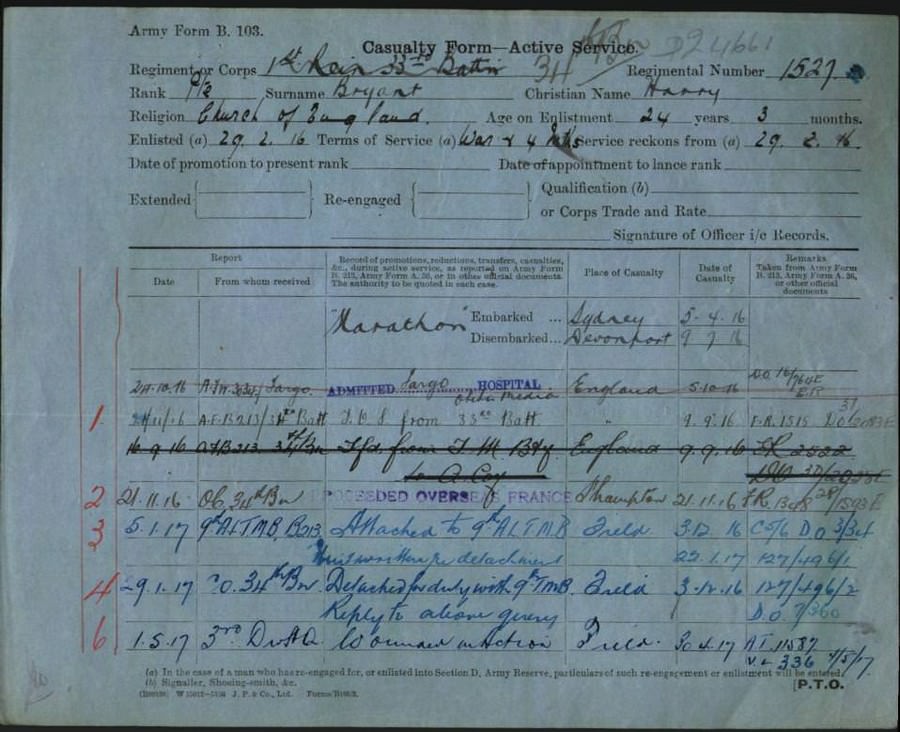 Army Form B. 103.
D24661
Casualty Form—Active Service.
Regiment or Corps 1st Rein 33rd Battn 34 Regimental Number 1527
Rank Pte Surname Bryant Christian Name Harry
Religion Church of England. Age on Enlistment 24 years 3 months.
Enlisted (a) 29. 2. 16 Terms of Service (a) War & 4 Mths Service reckons from (a) 29. 2. 16.
Date of promotion to present rank Date of appointment to lance rank
Extended Re-engaged Qualification (b)
or Corps Trade and Rate
Signature of Officer i/c Records.
Report
Date From whom received
Record of promotions, reductions, transfers, casualties, &c., during active service, as reported on Army Form B. 213, Army Form A. 36, or in other official documents. The authority to be quoted in each case.
Place of Casualty
Date of Casualty
Remarks
Taken from Army Form B. 213, Army Form A. 36, or other official documents
"Marathon" Embarked ... Sydney 5-4.16
Disembarked... Devonport 9 7 16
24.10.16 Fargo ADMITTED Fargo HOSPITAL England 5.10.16 D.O. 16/
Otitis Media
1 11/16 A.F.B213/34th Batt T.O.S from 33rd Batt. " 9.9.16 F.R. 1515 DO
16 9 16 AFB213 34th Bn Tfd. from T.M. Bty England 9.9.16 F.R 2522
to A Coy
2 21.11.16 OC. 34th Bn PROCEEDED OVERSEAS FRANCE S'hampton 21.11.16 F.R. 1348
3 5.1.17 9th ALTMB, B213 Attached to 9th ALTMB Field 3.12.16 C 5/6 DO 3/34
detachment 22.1.17 127/496/1
4 29.1.17 CO. 34th Bn Detached for duty with 9th TMB. Field 3-12.16 127/496/2
Reply to above query D.O. 7/360
6 1.5.17 3rd Wounded in Action Field. 30.4.17 A.F. 11537
336 4/5/17
(a) In the case of a man who has re-engaged for, or enlisted into Section D, Army Reserve, particulars of such re-engagement or enlistment will be entered.
(b) Signaller, Shoeing-smith, &c.
J. P. & Co., Ltd.
[P.T.O.